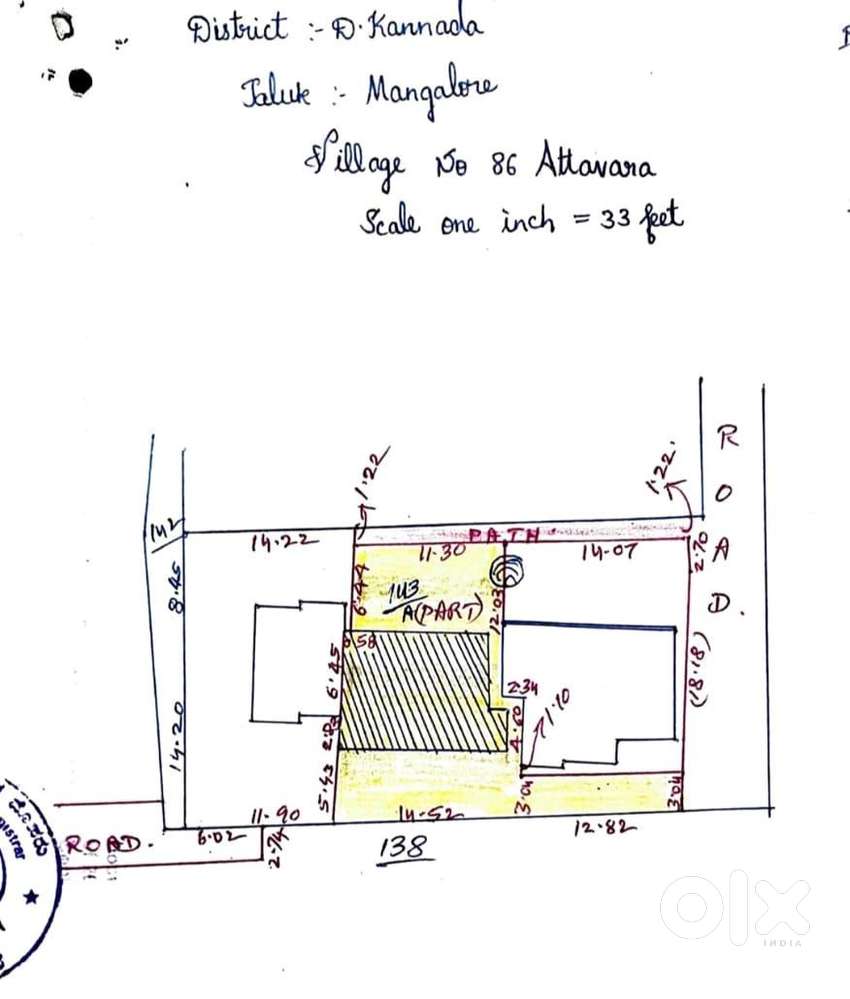 District :- D. Kannada
Taluk :- Mangalore
Village No 86 Attavara
Scale one inch = 33 feet
R
O
A
D.
1.22
1.22.
142
14.22
PATH
11.30
14.07
2.70
8.45
6.44
143
A(PART)
12.03
0.58
6.45
2.34
1.10
(18.18)
14.20
4.60
5.43
3.04
3.04
11.90
14.52
12.82
ROAD.
6.02
2.74
138
olx
INDIA